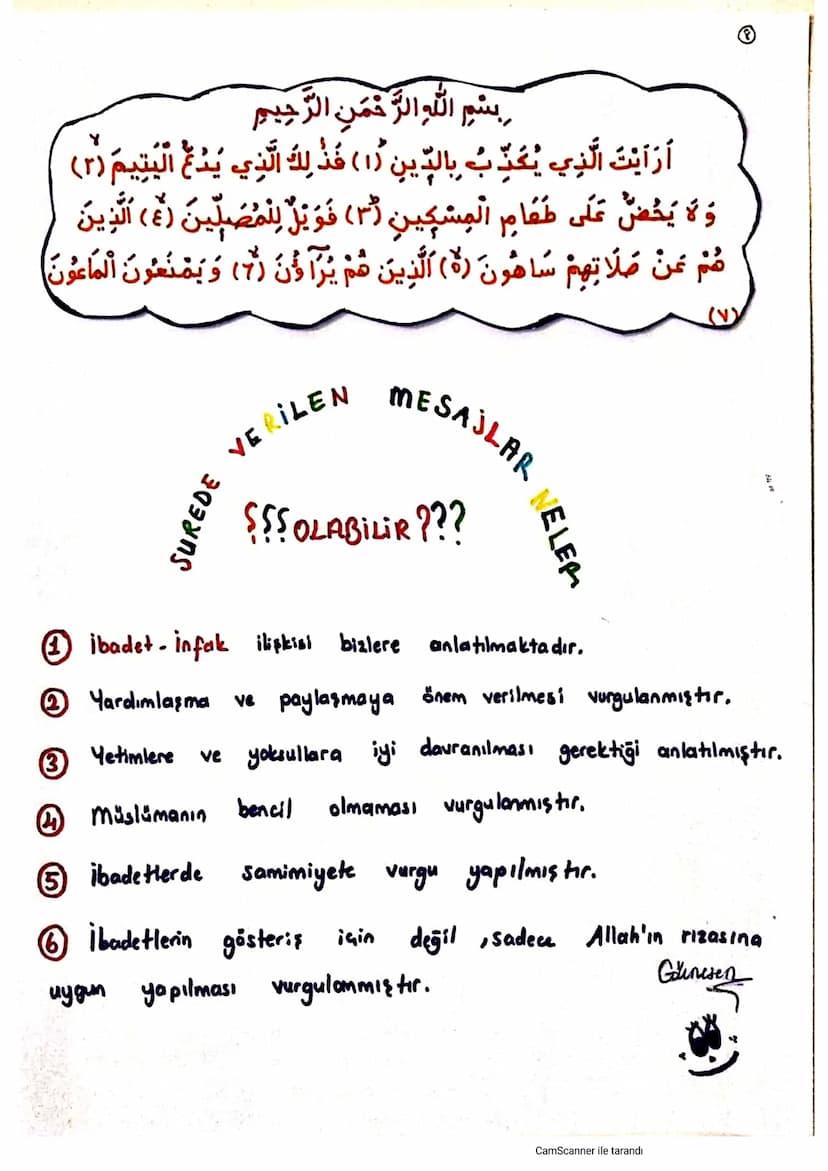 بِسْمِ اللّٰهِ الرَّحْمَنِ الرَّحِيمِ
اَرَاَيْتَ الَّذِي يُكَذِّبُ بِالدِّينِ (١) فَذٰلِكَ الَّذِي يَدُعُّ الْيَتِيمَ (٢)
وَلَا يَحُضُّ عَلَى طَعَامِ الْمِسْكِينِ (٣) فَوَيْلٌ لِلْمُصَلِّينَ (٤) اَلَّذِينَ
هُمْ عَنْ صَلَاتِهِمْ سَاهُونَ (٥) اَلَّذِينَ هُمْ يُرَاؤُنَ (٦) وَيَمْنَعُونَ الْمَاعُونَ
(٧)
SUREDE VERİLEN MESAJLAR NELER
???OLABİLİR???
1 İbadet - İnfak ilişkisi bizlere anlatılmaktadır.
2 Yardımlaşma ve paylaşmaya önem verilmesi vurgulanmıştır.
3 Yetimlere ve yoksullara iyi davranılması gerektiği anlatılmıştır.
4 Müslümanın bencil olmaması vurgulanmıştır.
5 İbadetlerde samimiyete vurgu yapılmıştır.
6 İbadetlerin gösteriş için değil, sadece Allah'ın rızasına
uygun yapılması vurgulanmıştır.
CamScanner ile tarandı